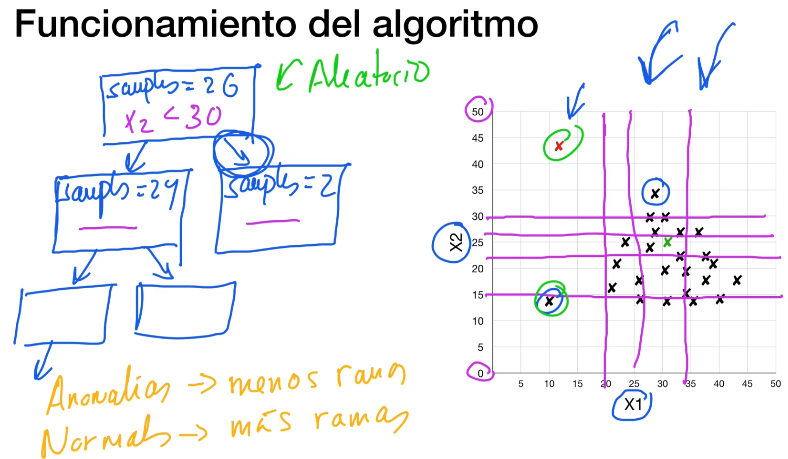 Funcionamiento del algoritmo
samples = 26
x2 < 30
Aleatorio
samples = 24
samples = 2
Anomalias → menos ramas
Normales → más ramas
50
45
40
35
30
25
20
15
10
5
0
X2
5 10 15 20 25 30 35 40 45 50
X1